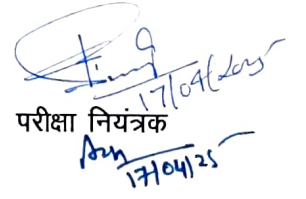 17/04/2025
परीक्षा नियंत्रक
17/04/25